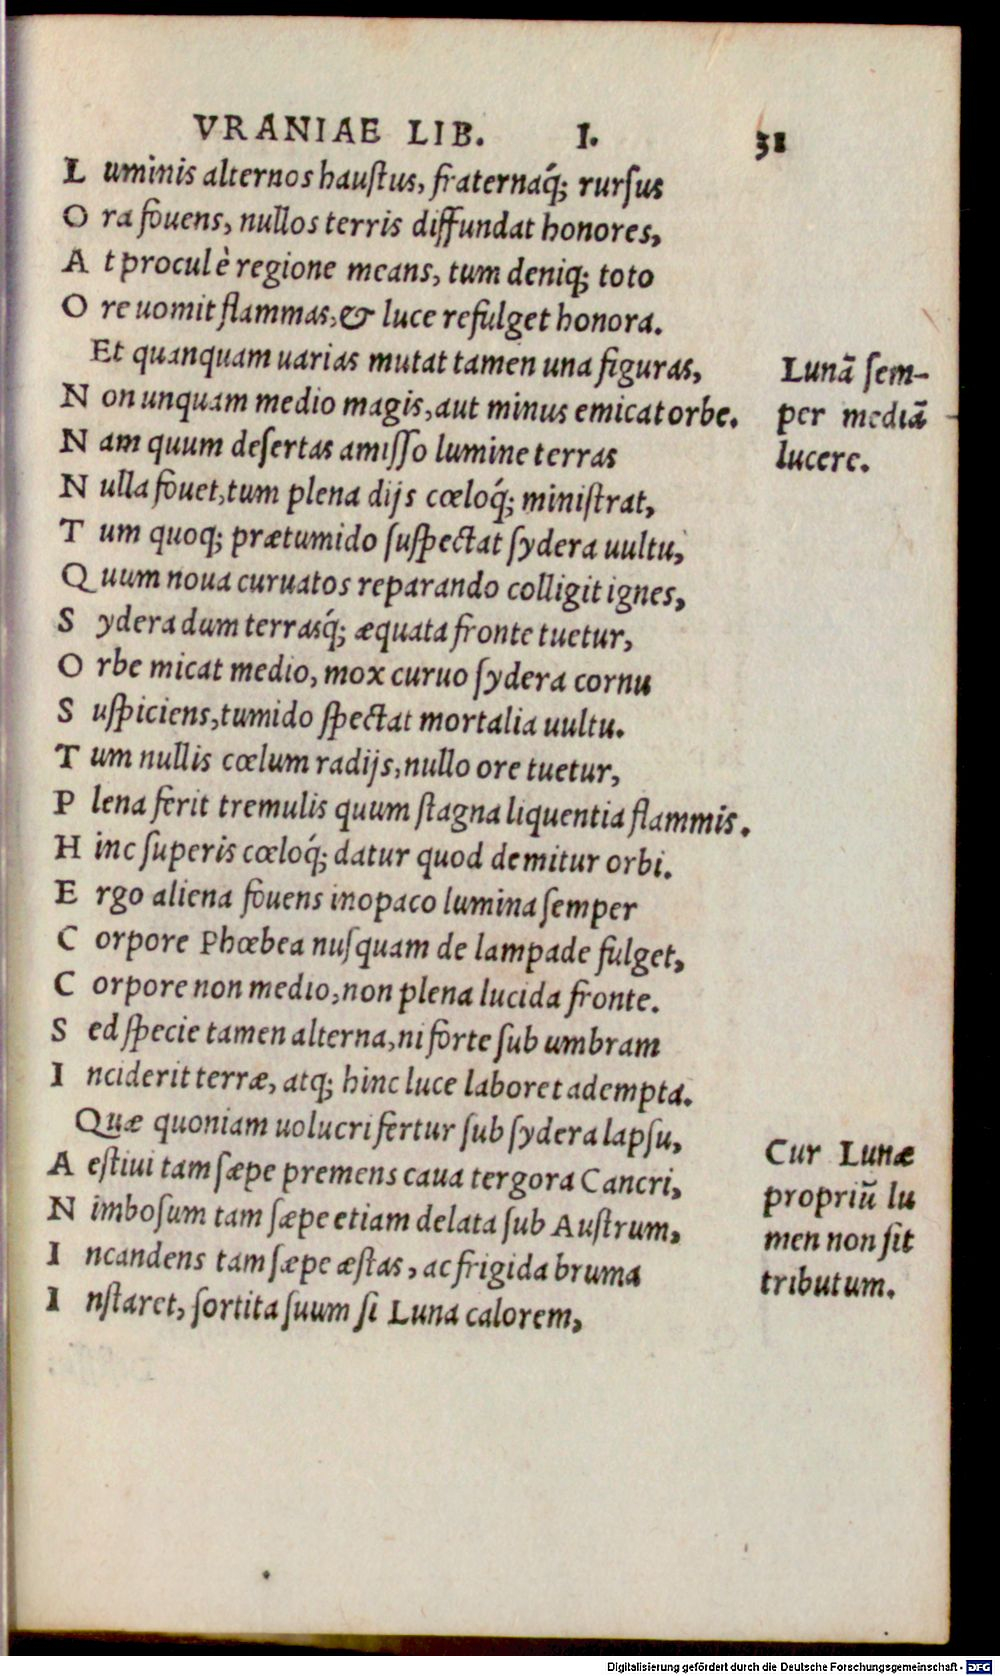 VRANIAE LIB. I. 31
Luminis alternos hauſtus, fraternaq́; rurſus
Ora fouens, nullos terris diffundat honores,
At procul è regione means, tum deniq; toto
Ore uomit flammas, & luce refulget honora.
Et quanquam uarias mutat tamen una figuras,
Non unquam medio magis, aut minus emicat orbe.
Nam quum deſertas amiſſo lumine terras
Nulla fouet, tum plena dijs cœloq́; miniſtrat,
Tum quoq; prætumido ſuſpectat ſydera uultu,
Quum noua curuatos reparando colligit ignes,
Sydera dum terrasq́; æquata fronte tuetur,
Orbe micat medio, mox curuo ſydera cornu
Suſpiciens, tumido ſpectat mortalia uultu.
Tum nullis cœlum radijs, nullo ore tuetur,
Plena ferit tremulis quum ſtagna liquentia flammis.
Hinc ſuperis cœloq́; datur quod demitur orbi.
Ergo aliena fouens in opaco lumina ſemper
Corpore Phœbea nuſquam de lampade fulget,
Corpore non medio, non plena lucida fronte.
Sed ſpecie tamen alterna, ni forte ſub umbram
Inciderit terræ, atq; hinc luce laboret adempta.
Quæ quoniam uolucri fertur ſub ſydera lapſu,
Aeſtiui tam ſæpe premens caua tergora Cancri,
Nimboſum tam ſæpe etiam delata ſub Auſtrum,
Incandens tam ſæpe æſtas, ac frigida bruma
Inſtaret, ſortita ſuum ſi Luna calorem,
Lunā ſem-
per mediā
lucere.
Cur Lunæ
propriū lu
men non ſit
tributum.
Digitalisierung gefördert durch die Deutsche Forschungsgemeinschaft - DFG